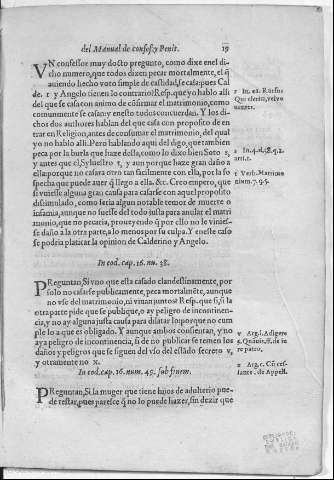 del Manuel de confess. y Penit. 19
VN confessor muy docto pregunto, como dixe en el di-
cho numero, que todos dizen pecar mortalmente, el q̃
auiendo hecho voto simple de castidad, se casa: pues Cal
de. r y Angelo tienen lo contrario? Resp. que yo hablo alli
del que se casa con animo de cõsumar el matrimonio, como
comunmente se casan: y enesto todos concuerdan. Y los di-
chos dos authores hablan del que casa con proposito de en
trar en Religion, antes de consumar el matrimonio, del qual
yo no hablo alli. Pero hablando aqui del digo, que tambien
peca por la burla que haze della, como lo dixo bien Soto s,
y antes que el, Syluestro t, y aun porque haze gran daño a
ella: porque no casara otro tan facilmente con ella, por la so
specha que puede auer q̃ llego a ella. &c. Creo empero, que
si vuiesse alguna gran causa para casarse con aquel proposito
dissimulado, como seria algun notable temor de muerte o
infamia, aunque no fuesse del todo justa para anular el matri
monio, que no pecaria, proueyendo q̃ por ello no le vinies-
se daño a la otra parte, a lo menos por su culpa. Y eneste caso
se podria platicar la opinion de Calderino y Angelo.
r In. ca. Rursus
Qui clerici, vel vo
uentes.
s In. 4. d. 38. q. 2.
arti. 1.
t Verb. Matrimo
nium. 7. q. 5.
In eod. cap. 16. nu. 38.
PReguntan, Si vno que esta casado clandestinamente, por
solo no casarse publicamente, peca mortalmẽte, aunque
no vse del matrimonio, ni viuan juntos? Resp. que si, si la
otra parte pide que se publique, o ay peligro de incontinen-
cia, y no ay alguna justa causa para dilatar lo: porque no cum
ple lo a que es obligado. Y aunque ambos consientan, y no
aya peligro de incontinencia, si de no publicar se temen los
daños y peligros que se siguen del vso del essãdo secreto v,
y otramente no x.
v Arg. l. Adigere
§. Quãuis, ff. de iu
re patro.
x Arg. c. Cũ ces-
sante, de Appell.
In eod. cap. 16. num. 49. sub finem.
PReguntan, Si la muger que tiene hijos de adulterio pue-
de testar, pues parece q̃ no lo puede hazer, sin dezir que